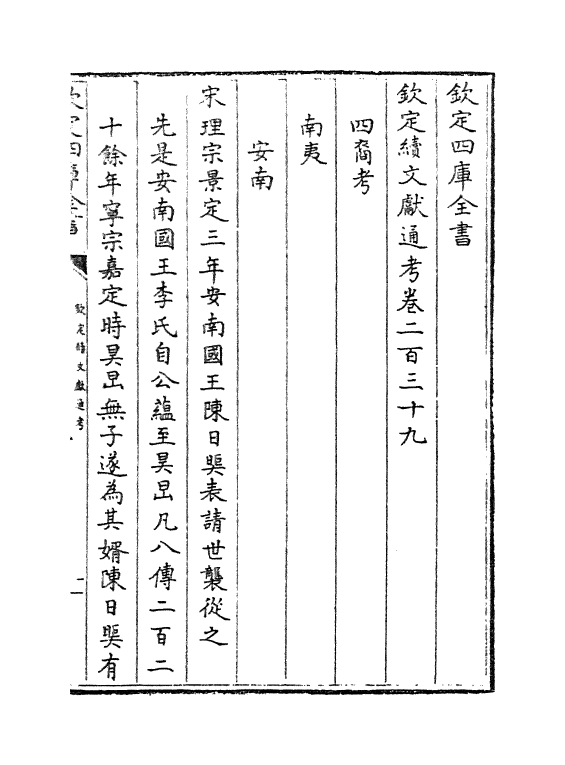 欽定四庫全書
欽定續文獻通考卷二百三十九
四裔考
南夷
安南
宋理宗景定三年安南國王陳日煚表請世襲從之
先是安南國王李氏自公蘊至昊旵凡八傳二百二
十餘年寧宗嘉定時昊旵無子遂為其婿陳日煚有
欽定四庫全書
欽定續文獻通考